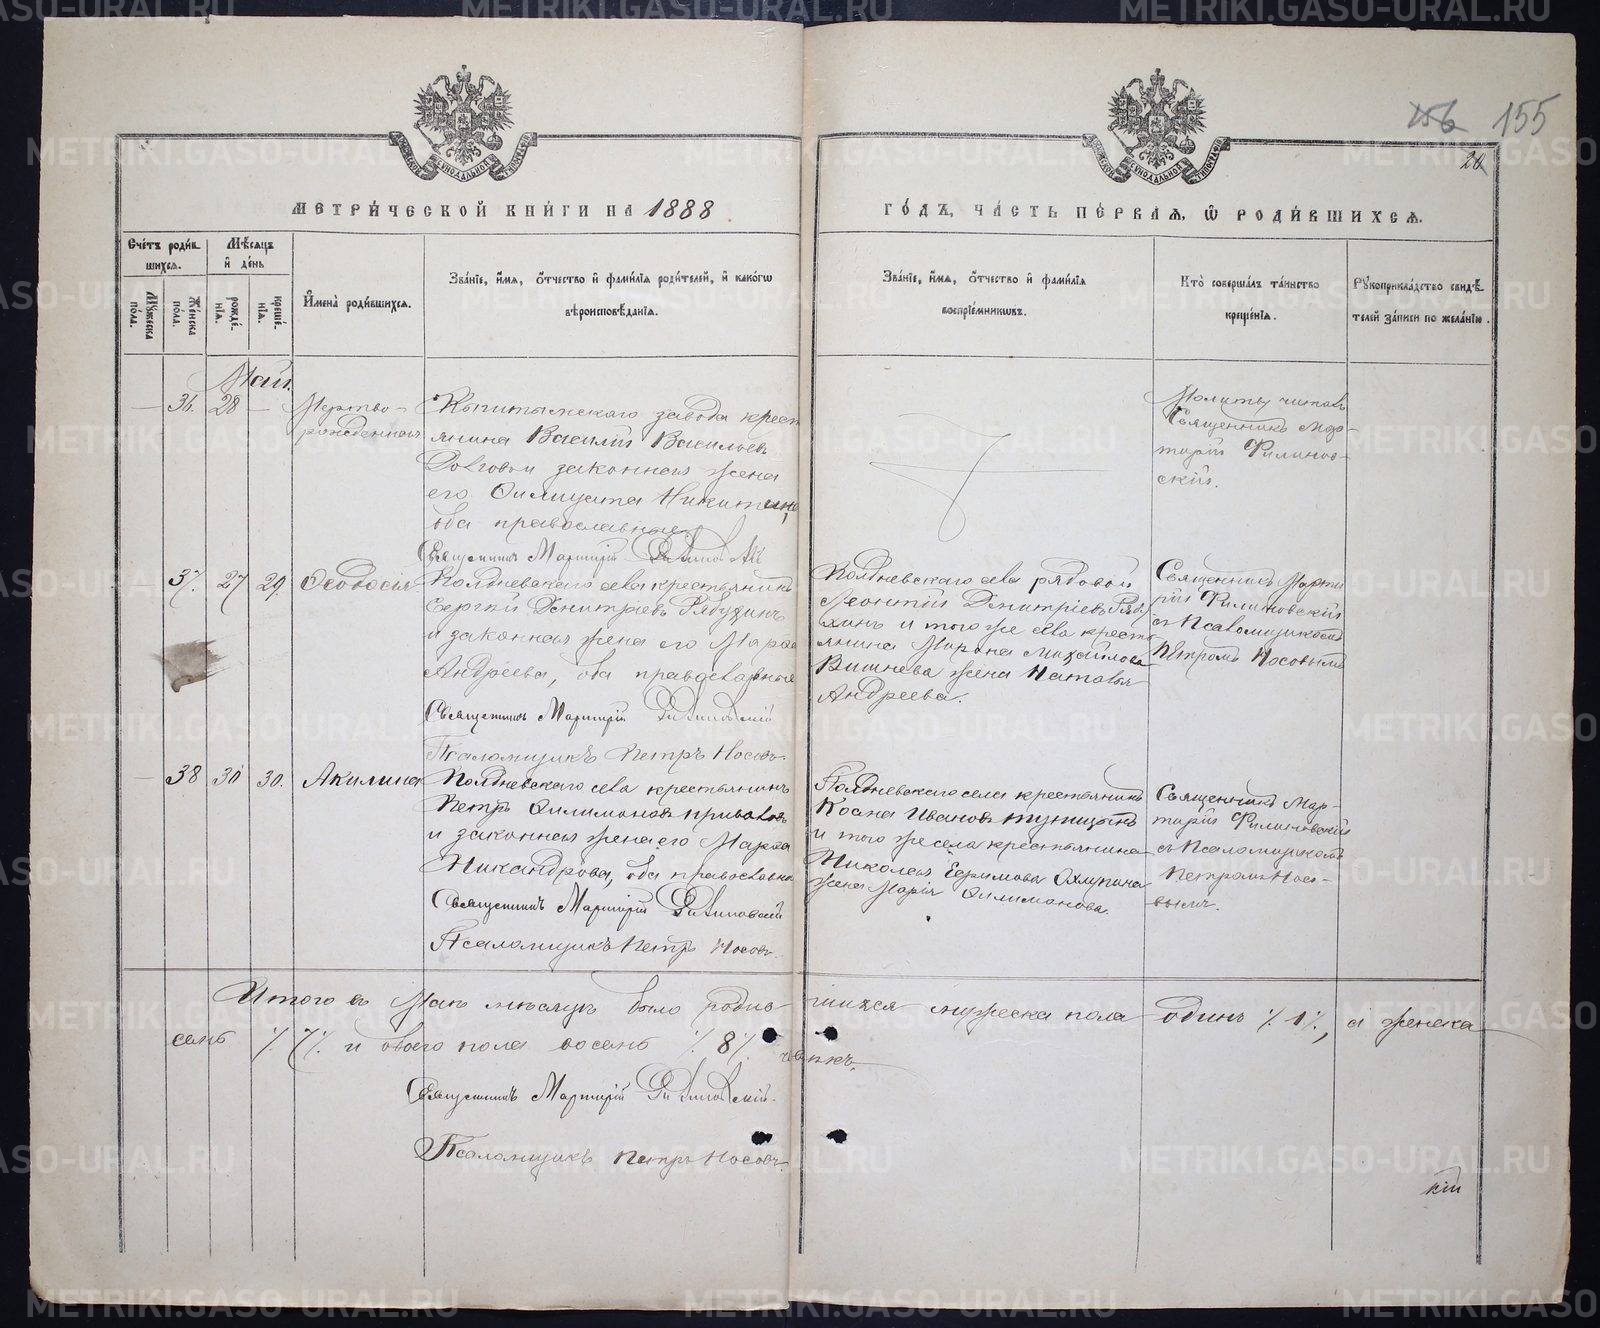 156 155
24
МЕТРИ́ЧЕСКОЙ КНИ́ГИ НА 1888
ГО́ДЪ, ЧА́СТЬ ПЕ́РВАѦ, Ѡ҆ РОДИ́ВШИХСѦ.
Сче́тъ роди́в
шихсѧ.
Мѣ́сѧцъ
и҆ де́нь
Мꙋ́жеска по́ла.
Же́нска по́ла.
рожде́нїѧ.
креще́нїѧ.
И҆мена̀ роди́вшихсѧ.
Зва́нїе, и҆́мѧ, ѻ҆́тчество и҆ фами́лїѧ роди́телей, и҆ како́гѡ
вѣроисповѣ́данїѧ.
Зва́нїе, и҆́мѧ, ѻ҆́тчество и҆ фами́лїѧ
воспрїе́мникѡвъ.
Кто̀ соверша́лъ та́инство
креще́нїѧ.
Рꙋкоприкла́дство свидѣ́
телей за́писи по жела́нїю.
Май.
— 36. 28 —
Мертво-
рожденная
завода крест
янина Василій Васильевъ
законная жена
его Никитина,
оба православные
Священникъ Мартирій Филиновскій
Молитву читалъ
Священникъ Мар-
тирій Филинов-
скій.
— 37. 27 29.
Ѳеодосія
Полдневскаго села крестьянинъ
Сергій Димитріевъ Рябухинъ
и законная жена его
Андреева, оба православные
Священникъ Мартирій Филиновскій
Псаломщикъ Петръ Носовъ.
Полдневскаго села рядовой
Леонтій Димитріевъ Рябу
хинъ и того же села кресть
янина Мирона Михайлова
Вишнева жена Наталья
Андреева.
Священникъ Марти
рій Филиновскій
съ Псаломщикомъ
Петромъ Носовымъ
— 38 30 30.
Акилина
Полдневскаго села крестьянинъ
Петръ Филимоновъ Приваловъ
и законная жена его Марѳа
Никандрова, оба православные
Священникъ Мартирій Филиновскій
Псаломщикъ Петръ Носовъ.
Полдневскаго села крестьянинъ
Косма Ивановъ
и того же села крестьянина
Николая Ефимова Охлупина
жена Марія Филимонова.
Священникъ Мар-
тирій Филиновскій
съ Псаломщикомъ
Петромъ Носо-
вымъ.
Итого въ Маѣ мѣсяцѣ было родив-шихся мужеска пола одинъ ٪ 1٪, а женска
семь ٪ 7٪ и обоего пола восемь ٪ 8٪ человѣкъ.
Священникъ Мартирій Филиновскій.
Псаломщикъ Петръ Носовъ.
METRIKI.GASO-URAL.RU